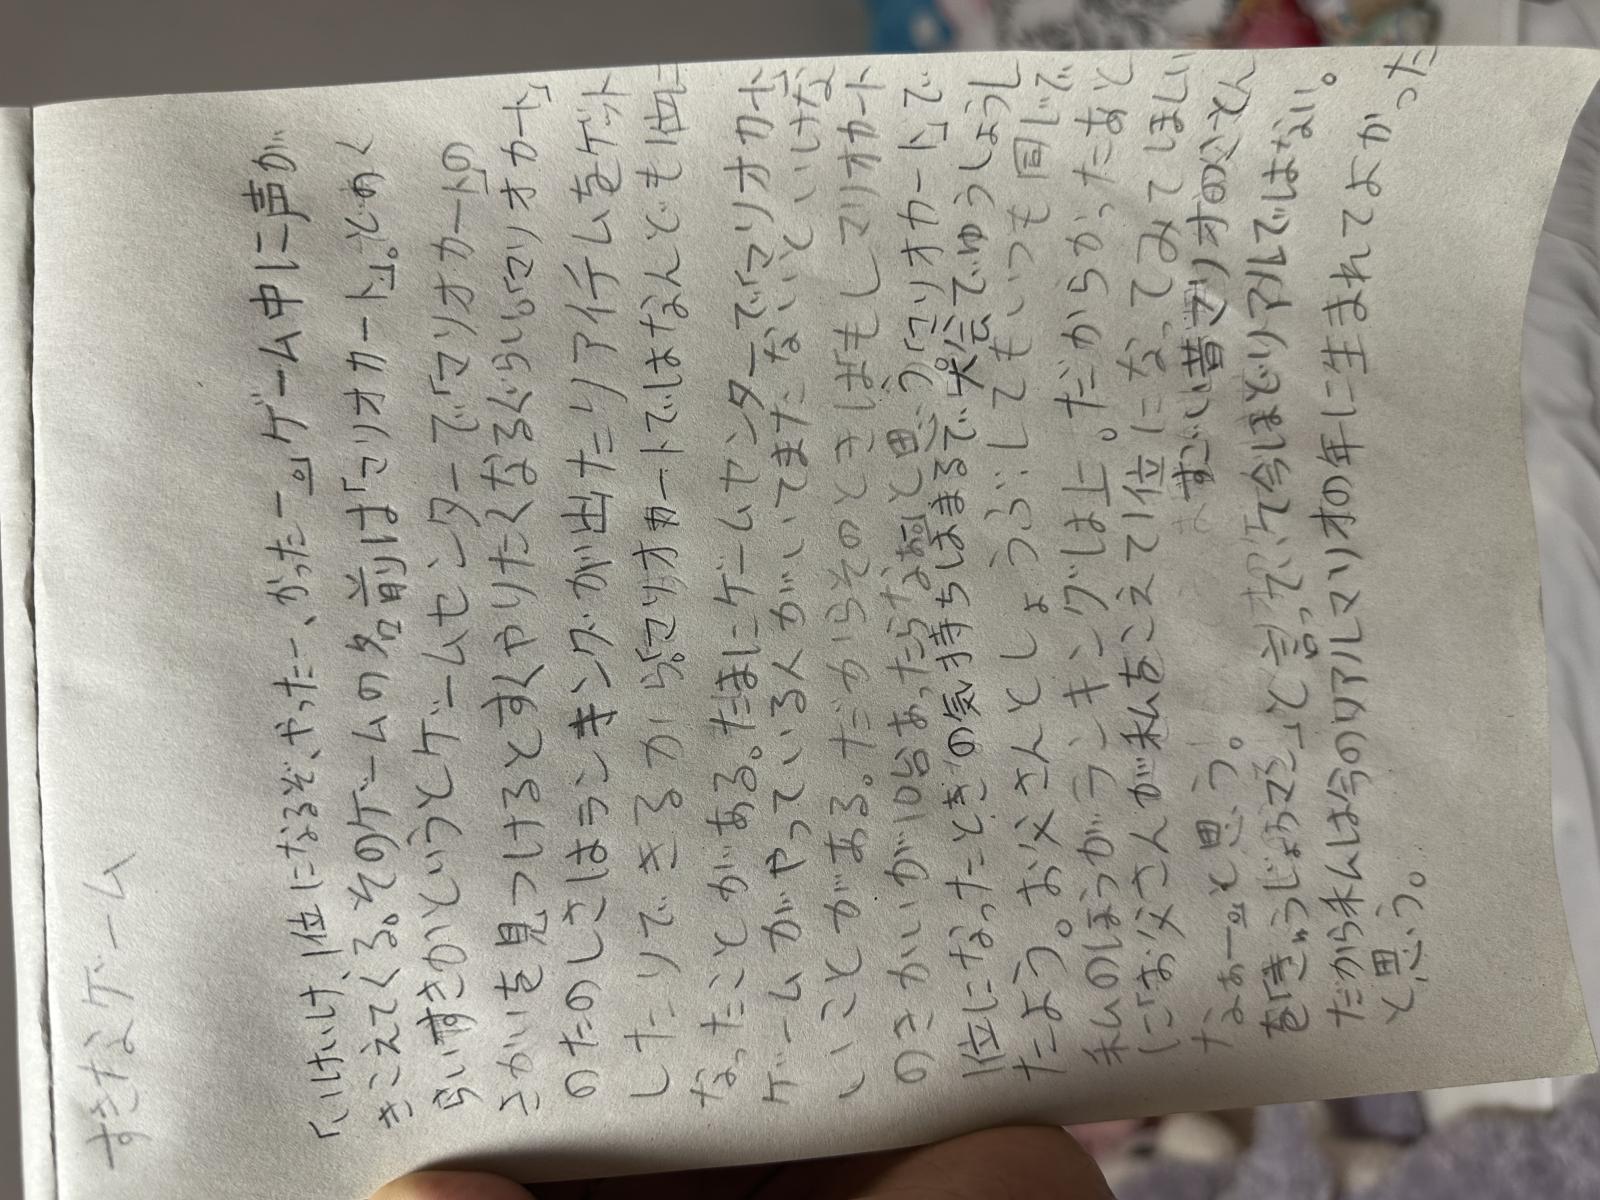 すきなゲーム
「いけいけ、1位になるぞ、やったー、かったー。」ゲーム中に声が
きこえてくる。そのゲームの名前は「マリオカート」。どのく
らいすきかというとゲームセンターで「マリオカート」の
きかいを見つけるとすぐやりたくなるぐらい。「マリオカート」
のたのしさはランキングが出たりアイテムをゲット
したりできるから。「マリオカート」ではなんども1位に
なったことがある。たまにゲームセンターで「マリオカート」
ゲームがやっている人がいてまたないといけな
いことがある。だからそのときはもしマリオカート
のきかいが10台あったらなあと思う。「マリオカート」で
1位になったときの気持ちはまるで大会でゆうしょうし
たよう。お父さんとしょうぶしてもいつも同じで
私のほうがランキングは上。だからかったあと
に「お父さんが私をこえて1位になってみてほしい
なあー。」と思う。すごい昔マリオの父さん
を「きゅうじょうでご」と言っていて今ほどリアルではない。
だから私は今のリアルマリオの年に生まれてよかった
と思う。